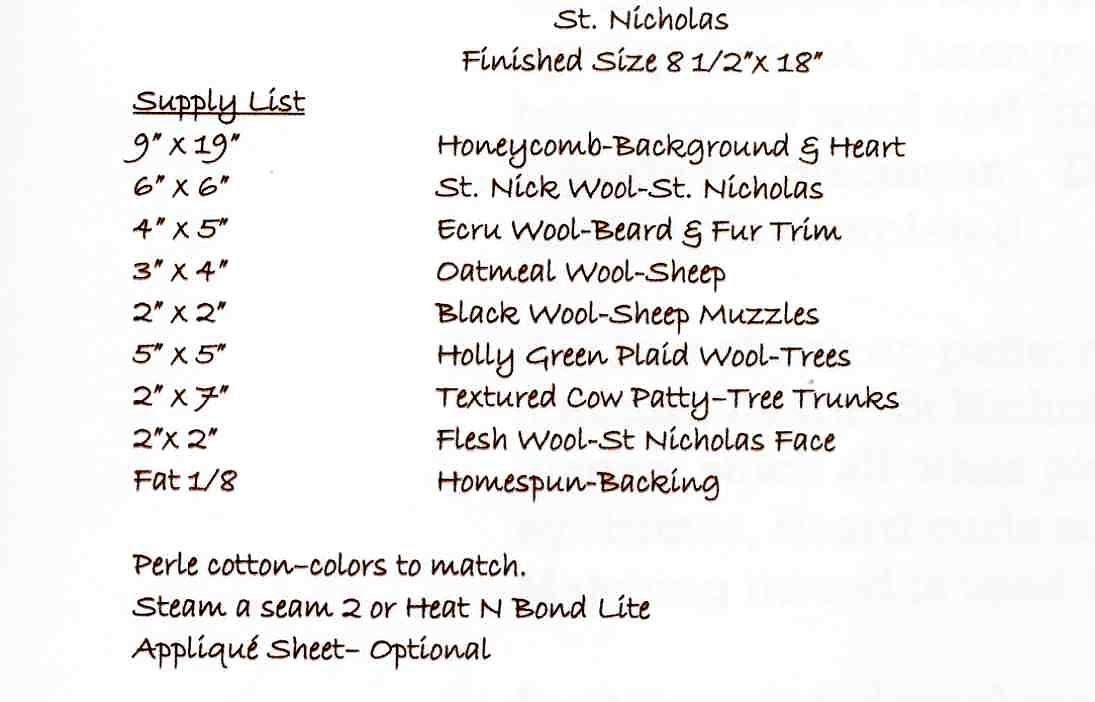 St. Nicholas
Finished Size 8 1/2"x 18"
Supply List
9" x 19" Honeycomb-Background & Heart
6" x 6" St. Nick Wool-St. Nicholas
4" x 5" Ecru Wool-Beard & Fur Trim
3" x 4" Oatmeal Wool-Sheep
2" x 2" Black Wool-Sheep Muzzles
5" x 5" Holly Green Plaid Wool-Trees
2" x 7" Textured Cow Patty-Tree Trunks
2"x 2" Flesh Wool-St Nicholas Face
Fat 1/8 Homespun-Backing
Perle cotton-colors to match.
Steam a seam 2 or Heat N Bond Lite
Appliqué Sheet- Optional